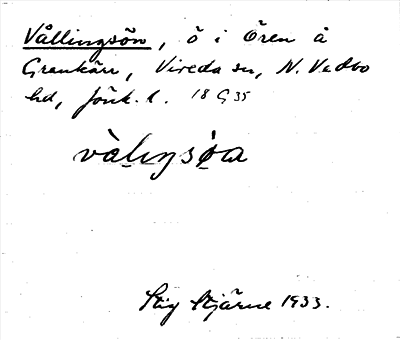 Vållingsön, ö i Ören å
Grankärr, Vireda sn, N. Vedbo
hd, Jönk. l. 18 G 35
vàlıŋsöa
Stig Stjärne 1933.